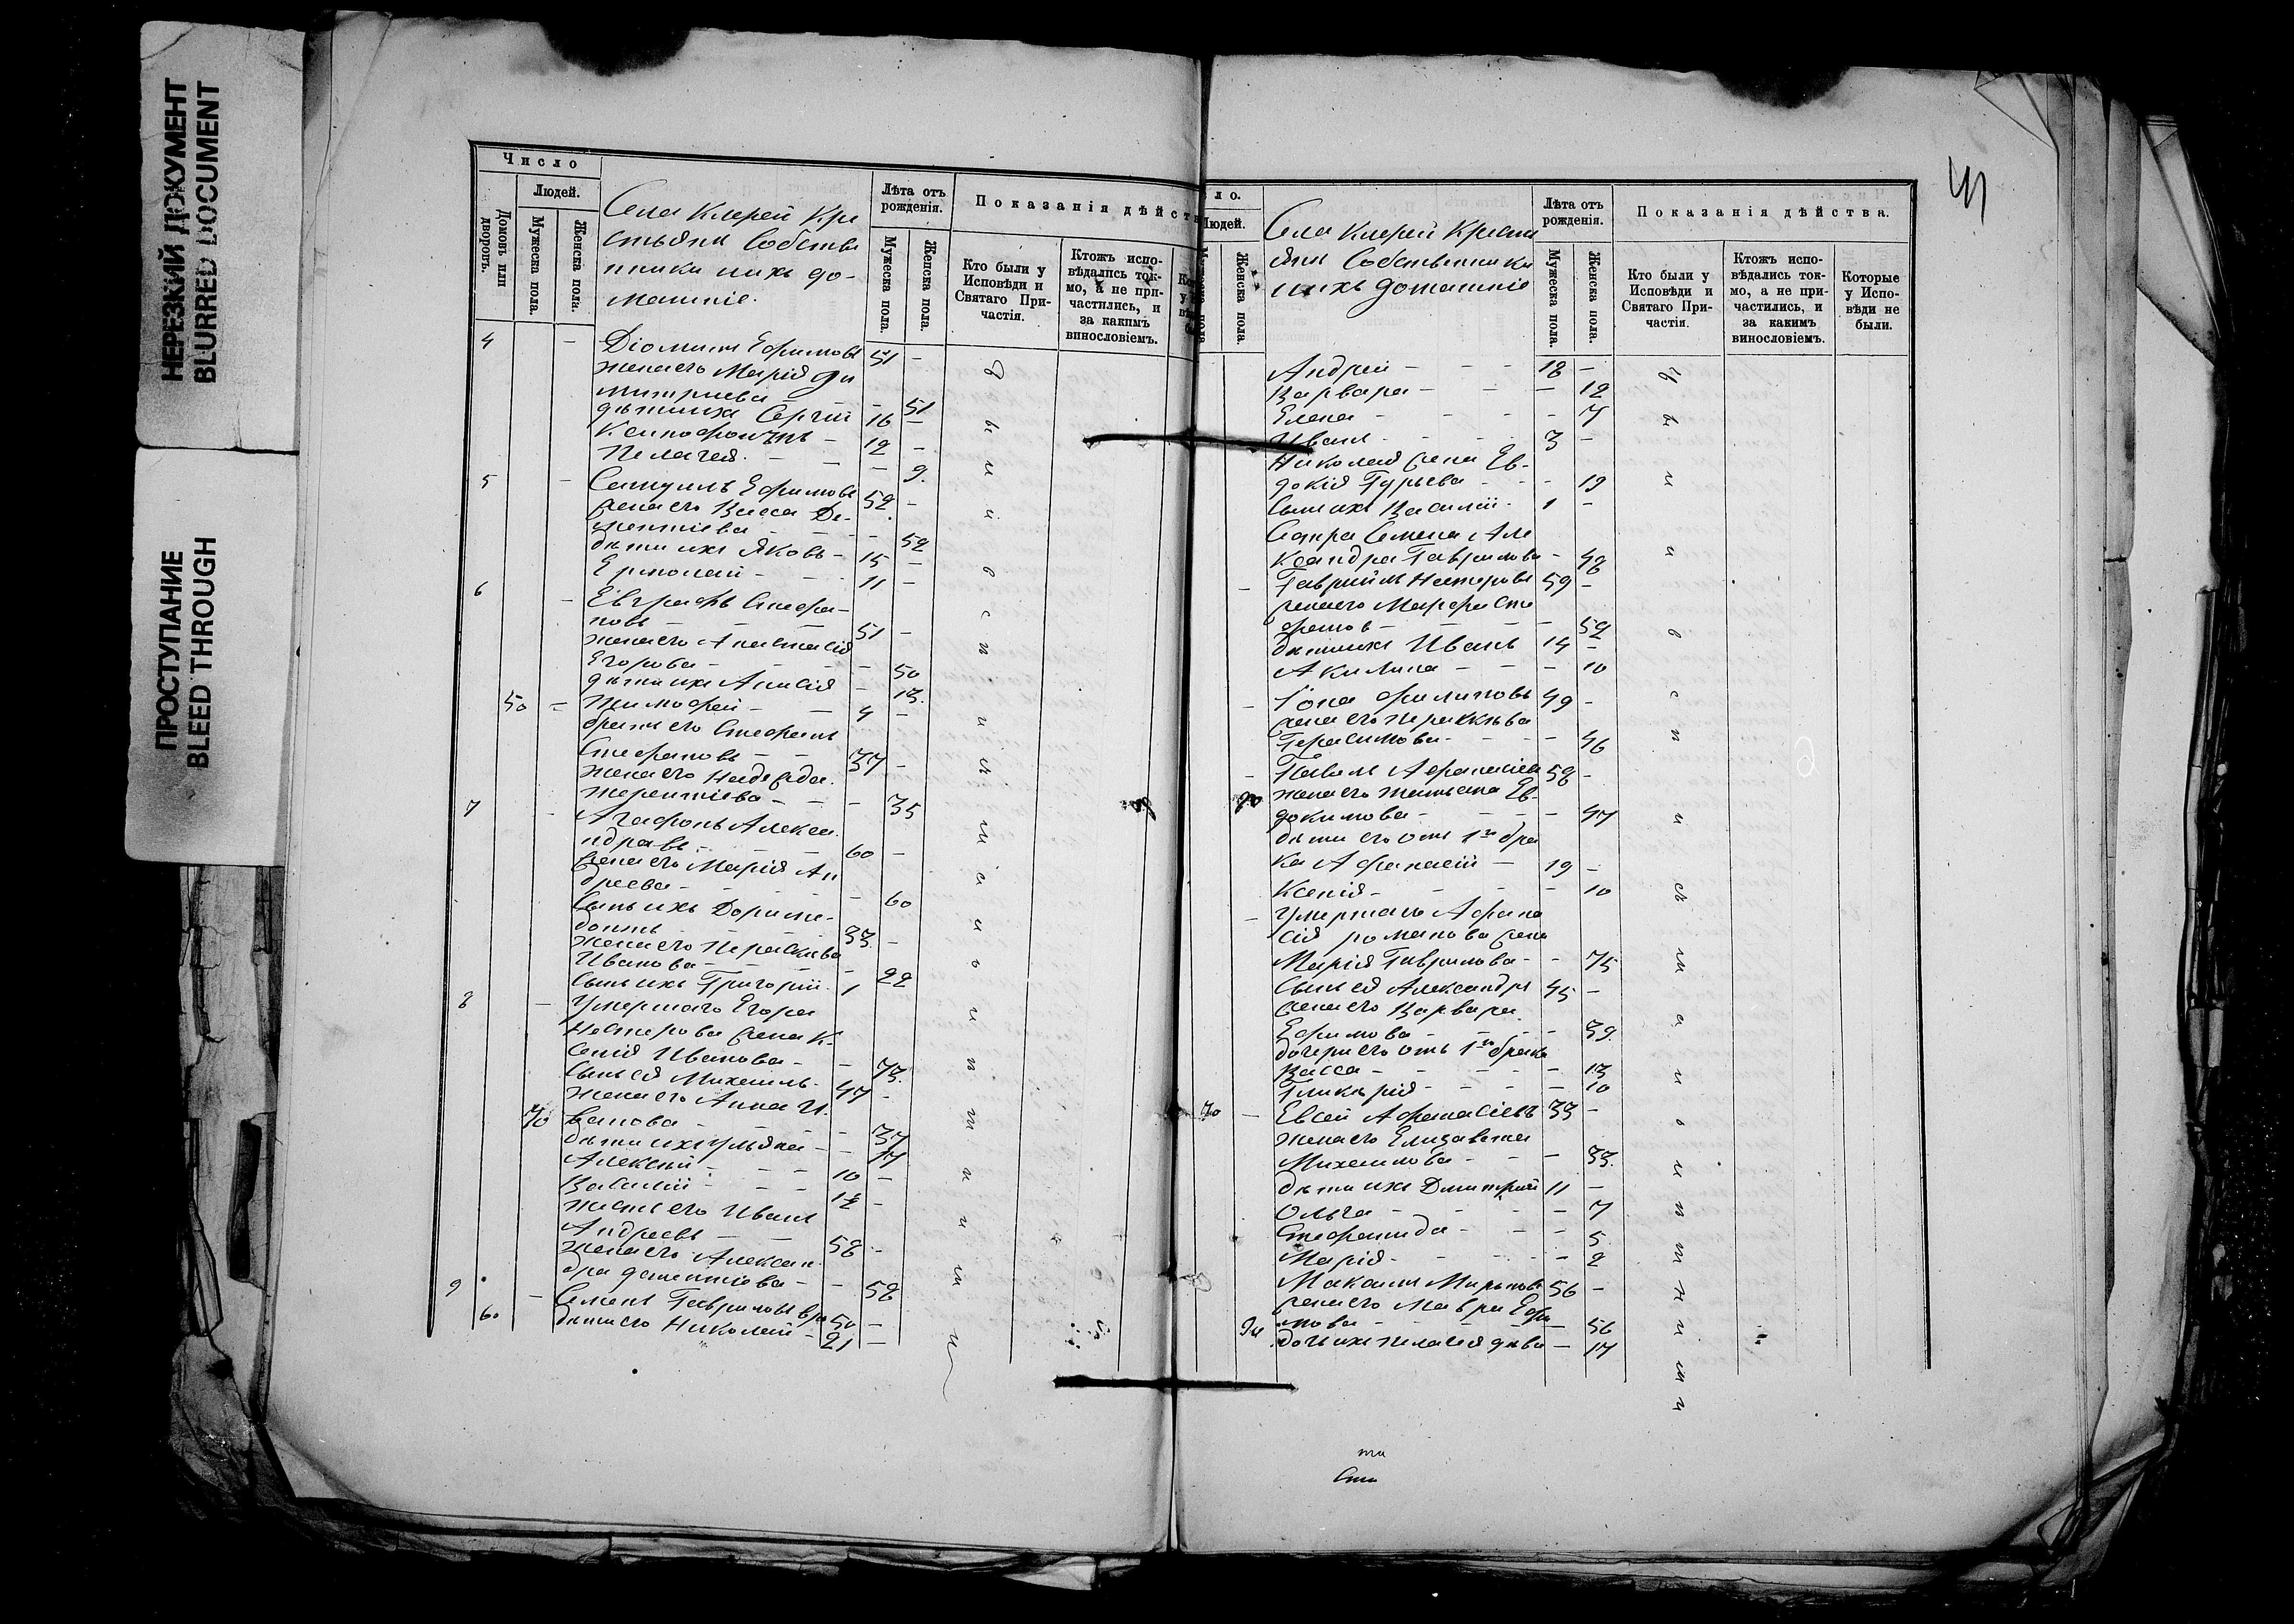 НЕРЕЗКИЙ ДОКУМЕНТ
BLURRED DOCUMENT
ПРОСТУПАНИЕ
BLEED THROUGH
Число
Людей.
Домовъ или дворовъ.
Мужеска пола.
Женска пола.
Села Клерей Кре
стьяни Собстве
нники ихъ до-
машніе.
Лѣта отъ рожденія.
Мужеска пола.
Женска пола.
Показанія дѣйств
Кто были у Исповѣди и Святаго Причастія.
Ктожъ исповѣдались токмо, а не причастились, и за какимъ винословіемъ.
4 - Діомидъ Ефимовъ 51 -
жена его Марія Ди
митриева - - 51
дѣти ихъ Сергій 16 -
Ксенофонтъ - 12 -
Пелагея - - - 9.
5 - Самуилъ Ефимовъ 52 -
жена его Васса Де-
ментіева - - - 52
дѣти ихъ Яковъ - 15 -
Ермолай - - 11 -
6 - Евграфъ Стефа-
новъ - - - 51 -
жена его Анастасія
Егорова - - - 50
дѣти ихъ Анисія - 13.
50 = Тимофей - - 4 -
братъ его Стефанъ
Стефановъ - - 37 -
жена его Надежда
Терентіева - - - 35
7 - Агафонъ Алекса
ндровъ - - - 60 -
жена его Марія Ан
дреева - - - - 60
Сынъ ихъ Дориме-
донтъ - - - 33 -
жена его Параскева
Иванова - - - - 22
Сынъ ихъ Григорій 1
8 - Умершаго Егора
Нестерова жена К-
сенія Иванова - - 73.
Сынъ ея Михаилъ - 47 -
жена его Анна И-
70 ванова - - - 37
дѣти ихъ Ульяна - - 17
Алексѣй - - - 10 -
Василій - - - 1½ -
зять его Иванъ
Андреевъ - - 58 -
жена его Алексан
дра Дементіева - - 58
9 - Семенъ Гавриловъ вдо 50 -
60 дѣти его Николай - 21 -
ло.
Людей.
Женска пола.
Села Клерей Крести
яни Собственники
ихъ домашніе
Лѣта отъ рожденія.
Мужеска пола.
Женска пола.
Показанія дѣйства.
Кто были у Исповѣди и Святаго Причастія.
Ктожъ исповѣдались токмо, а не причастились, и за какимъ винословіемъ.
Которые у Исповѣди не были.
Андрей - - - 18 -
Варвара - - - 12
Елена - - - 7
Иванъ - - - 3 -
Николая жена Ев-
докія Гурьева - - - 19
Сынъ ихъ Василій - 1 -
Сестра Семена Але
ксандра Гаврилова - 48
- Гавріилъ Нестеровъ 59 -
жена его Марфа Сте
фанов - - - - 59
дѣти ихъ Иванъ 14 -
Акилина - - - 10
- Іона Филиповъ 49 -
жена его Параскева
Герасимова - - - 46
- Павелъ Афанасіевъ 58 -
жена его Татьяна Ев-
докимова - - - - 47
дѣти его отъ 1го бра
ка Афанасій - 19 -
Ксенія - - - - 10
- Умершаго Афана
сія Романова жена
Марія Гаврилова - - 75
Сынъ ея Александръ 45 -
жена его Варвара
Ефимова - - - - 39.
дочери его отъ 1го брака
Васса - - - - 13
Гликерія - - - - 10
70 - Евсей Афанасіевъ 33 -
жена его Елизавета
Михаилова - - - 33.
дѣти ихъ Димитрій 11 -
Ольга - - - - 7
Стефанида - - - 5
Марія - - - - 2
Макаръ Мироновъ 56 -
жена его Мавра Ефи
мова - - - - 56
дочь ихъ Пелагея дѣва - 17